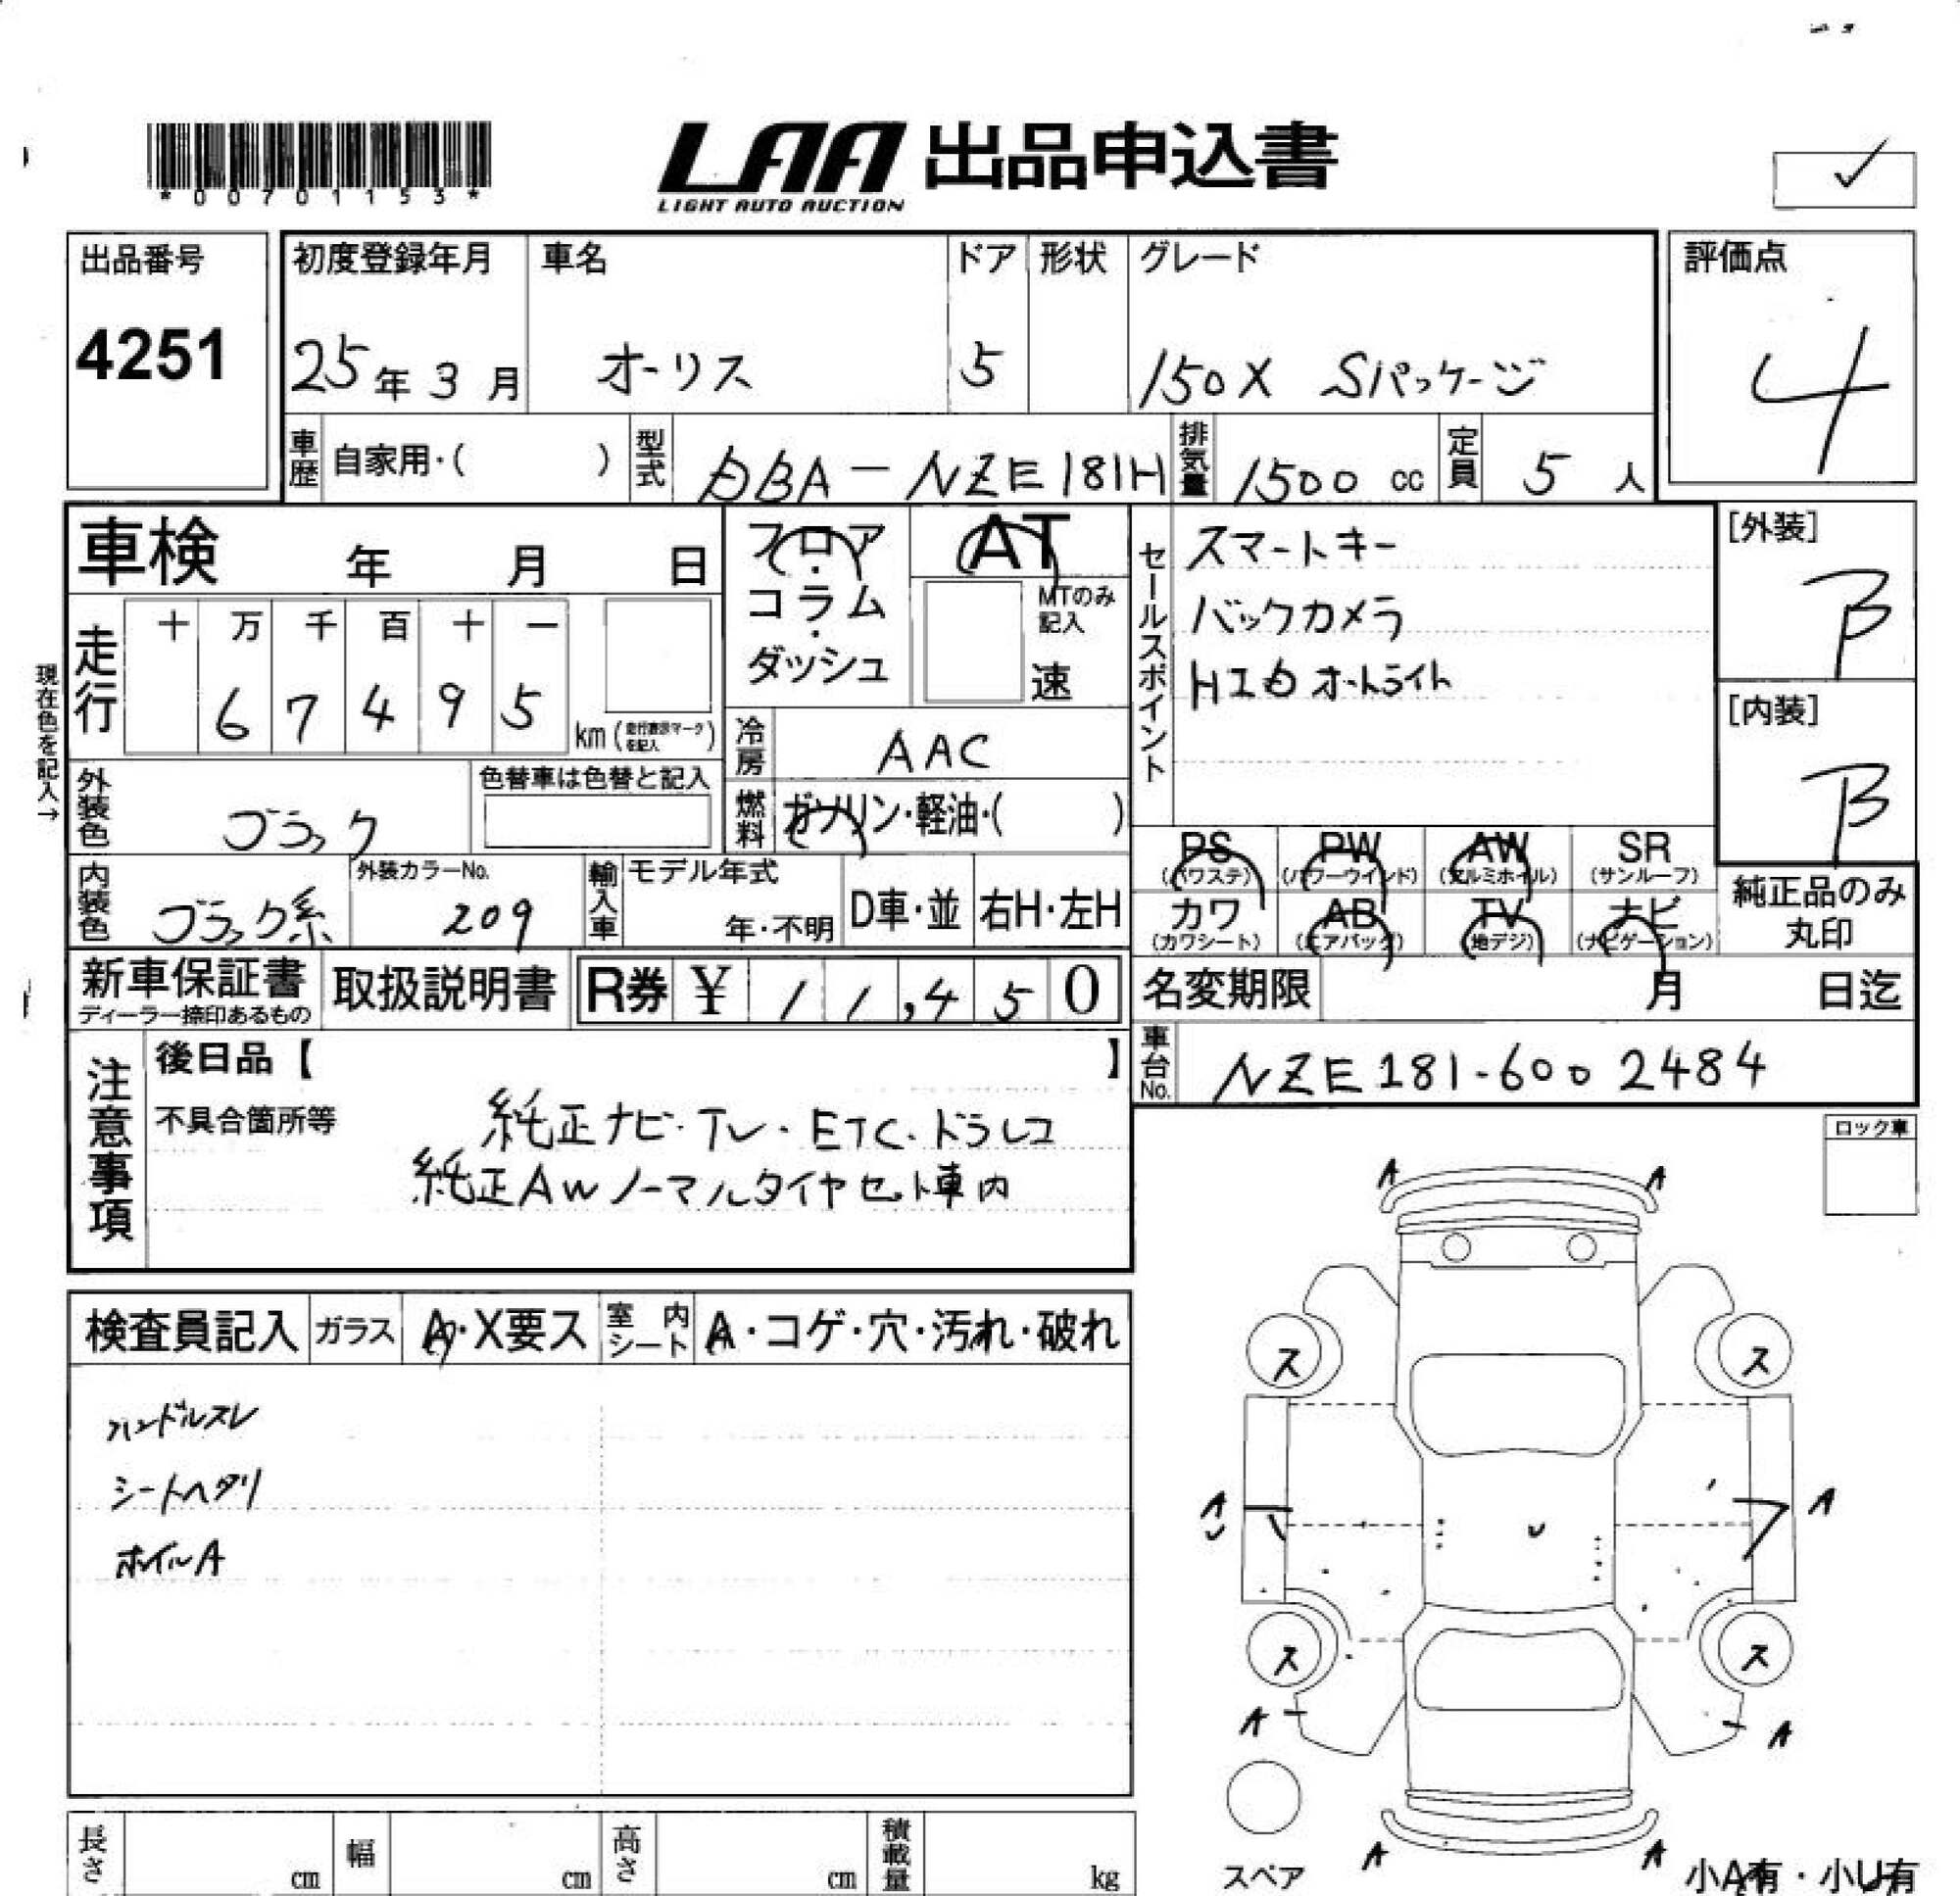 *00701153*
LAA 出品申込書
LIGHT AUTO AUCTION
出品番号
4251
初度登録年月
25年3月
車名
オーリス
ドア
5
形状
グレード
150X Sパッケージ
評価点
4
車歴
自家用・( )
型式
DBA-NZE181H
排気量
1500 cc
定員
5 人
車検 年 月 日
フロア・コラム・ダッシュ
AT
MTのみ記入
速
セールスポイント
スマートキー
バックカメラ
HIDオートライト
[外装]
B
[内装]
B
現在色を記入→
走行
十 万 千 百 十 一
6 7 4 9 5
km (走行表示マークを記入)
冷房
AAC
燃料
ガソリン・軽油・( )
外装色
ブラック
色替車は色替と記入
内装色
ブラック系
外装カラーNo.
209
輸入車
モデル年式
年・不明
D車・並
右H・左H
PS (パワステ)
PW (パワーウインド)
AW (アルミホイル)
SR (サンルーフ)
カワ (カワシート)
AB (エアバッグ)
TV (地デジ)
ナビ (ナビゲーション)
純正品のみ
丸印
新車保証書
ディーラー捺印あるもの
取扱説明書
R券 ¥ 11,450
名変期限 月 日迄
車台No.
NZE181-6002484
注意事項
後日品【 】
不具合箇所等
純正ナビ・TV・ETC・ドラレコ
純正AWノーマルタイヤセット車内
ロック車
検査員記入
ガラス
A・X要ス
室内シート
A・コゲ・穴・汚れ・破れ
ハンドルスレ
シートヘタリ
ホイルA
A A
ス ス
A A
ス ス
A A
A A
スペア
小A有・小U有
長さ cm
幅 cm
高さ cm
積載量 kg